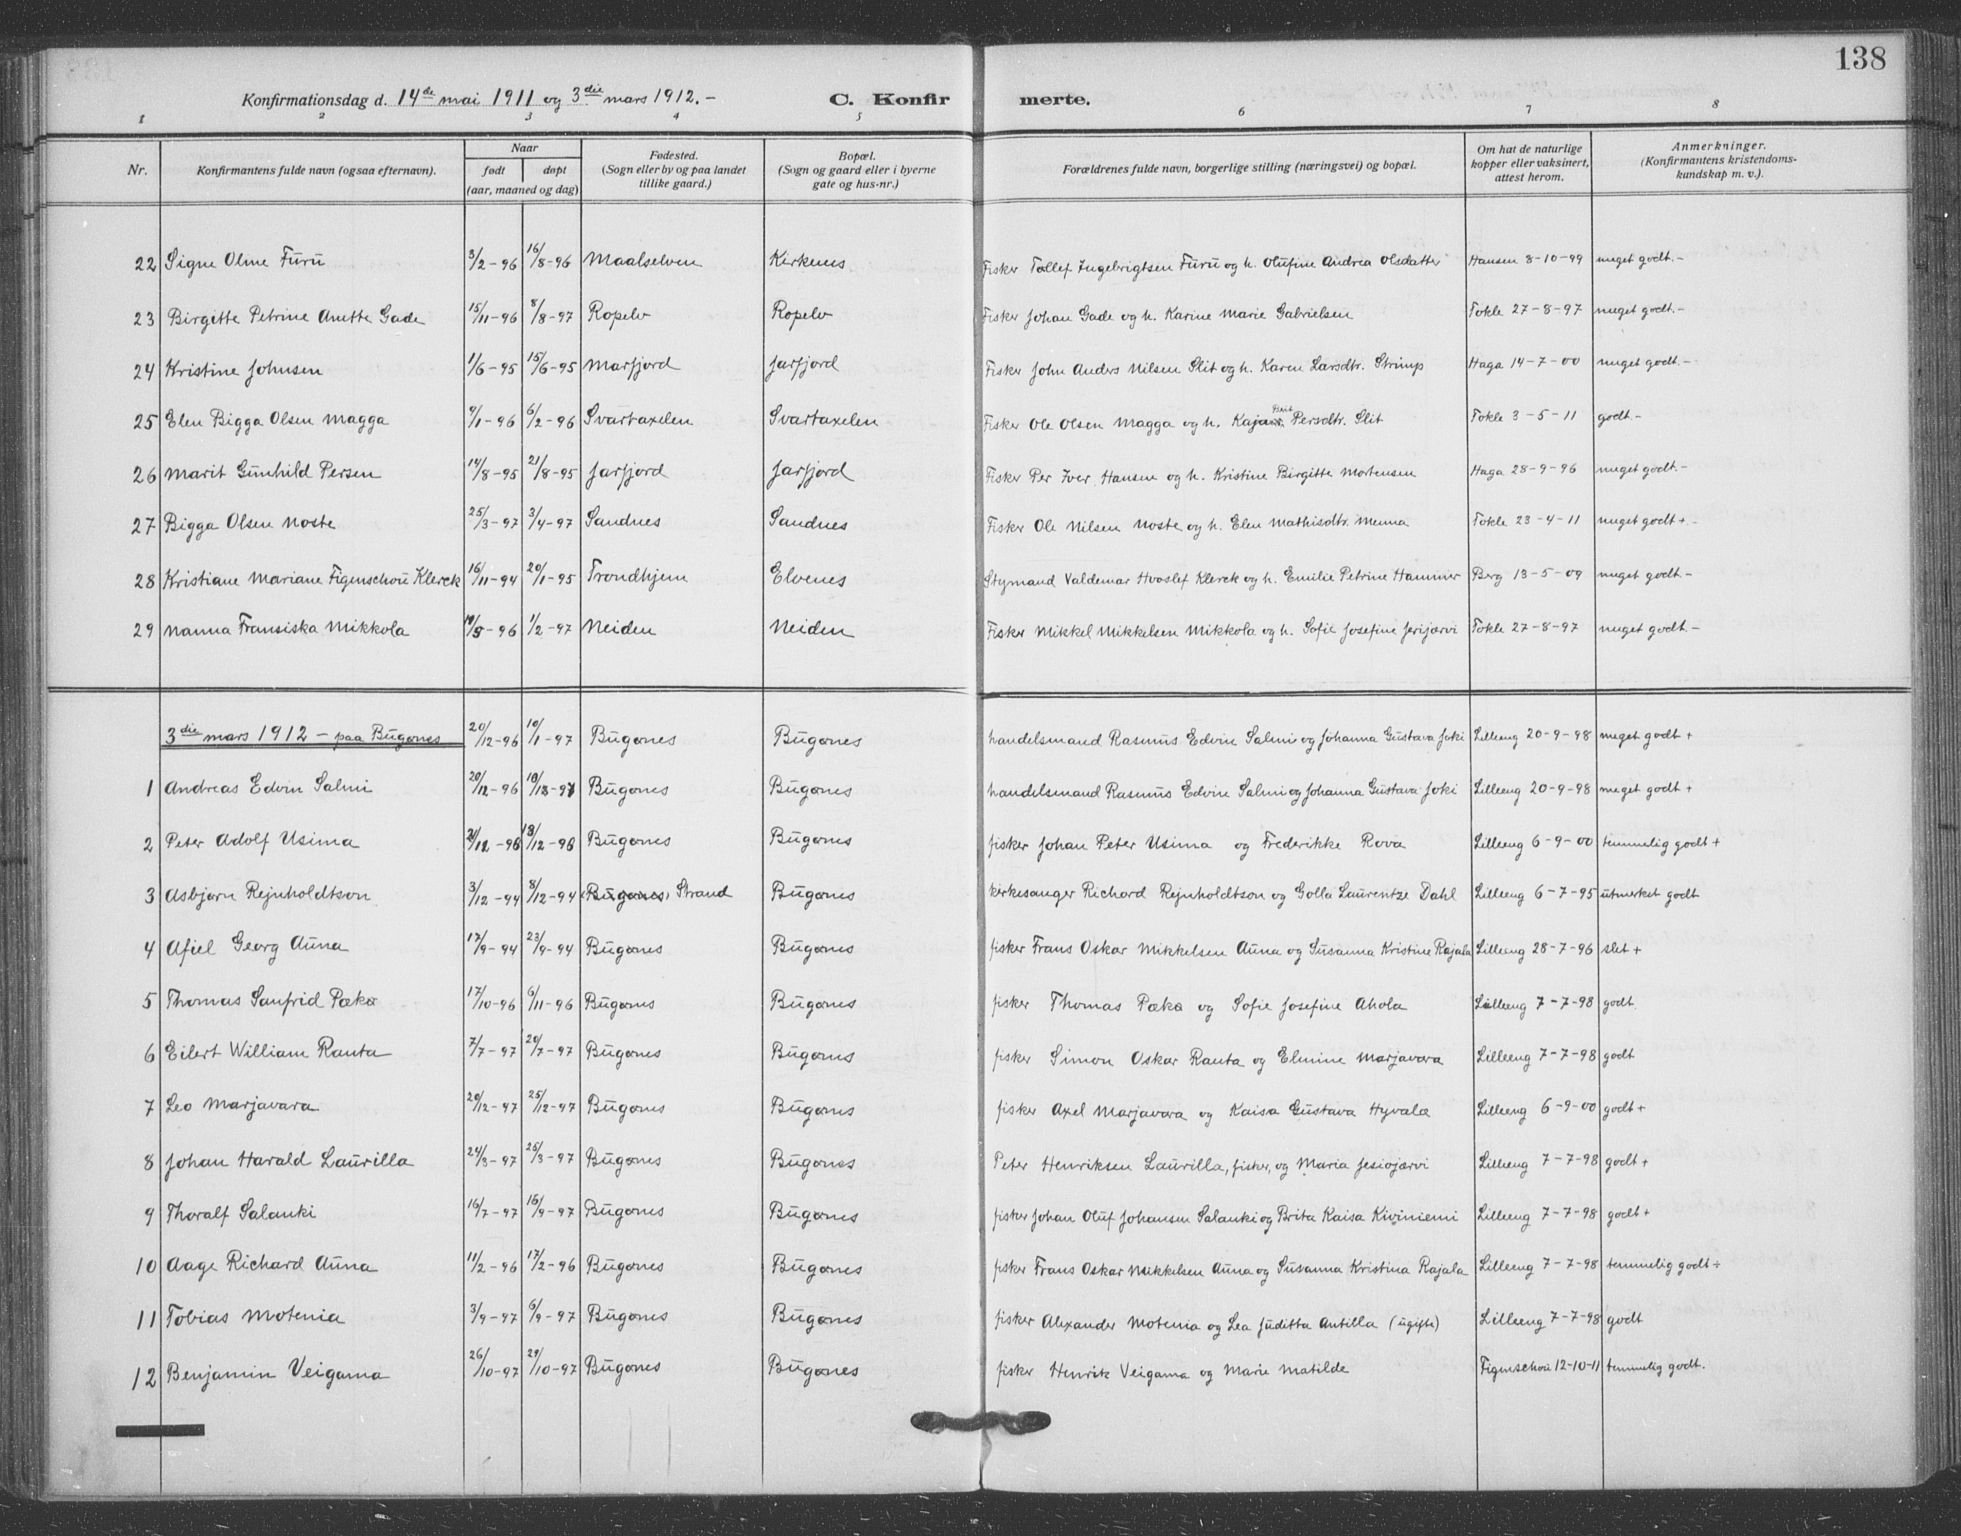 138
Konfirmationsdag d. 14de mai 1911 og 3die mars 1912. -
C. Konfirmerte.
1 2 3 4 5 6 7 8
Nr. Konfirmantens fulde navn (ogsaa efternavn). Naar født døpt (aar, maaned og dag) Fødested. (Sogn eller by og paa landet tillike gaard.) Bopæl. (Sogn og gaard eller i byerne gate og hus-nr.) Forældrenes fulde navn, borgerlige stilling (næringsvei) og bopæl. Om hat de naturlige kopper eller vaksinert, attest herom. Anmerkninger. (Konfirmantens kristendomskundskap m. v.).
22 Signe Olme Furu 3/2-96 16/8-96 Maalselven Kirkenes Fisker Tollef Ingebrigtsen Furu og h. Olufine Andrea Olsdatter Hansen 8-10-99 meget godt.-
23 Birgitte Petrine Anette Gade 15/11-96 8/8-97 Ropelv Ropelv Fisker Johan Gade og h. Karine Marie Gabrielsen Tokle 27-8-97 meget godt.-
24 Kristine Johnsen 1/6-95 15/6-95 Marfjord Jarfjord Fisker John Anders Nilsen Slit og h. Karen Larsdtr. Strimp Haga 14-7-00 meget godt.-
25 Elen Bigga Olsen Magga 9/1-96 6/2-96 Svartaxelen Svartaxelen Fisker Ole Olsen Magga og h. Persdtr. Slit Tokle 3-5-11 godt.-
26 Marit Gunhild Persen 14/8-95 21/8-95 Jarfjord Jarfjord Fisker Per Iver Hansen og h. Kristine Birgitte Mortensen Haga 28-9-96 meget godt.-
27 Bigga Olsen Noste 25/3-97 3/4-97 Sandnes Sandnes Fisker Ole Nilsen Noste og h. Elen Mathisdtr. Menna Tokle 23-4-11 meget godt+.-
28 Kristiane Mariane Figenschou Klerck 16/11-94 20/1-95 Trondhjem Elvenes Stymand Valdemar Hvoslef Klerck og h. Emilie Petrine Hammer Berg 13-5-09 meget godt.-
29 Nanna Fransiska Mikkola /5-96 1/2-97 Neiden Neiden Fisker Mikkel Mikkelsen Mikkola og h. Sofie Josefine Jerijærvi Tokle 27-8-97 meget godt.-
3die mars 1912 - paa Bugønes 20/12-96 10/1-97 Bugønes Bugønes handelsmand Rasmus Edvin Salmi og Johanna Gustava Joki Lilleeng 20-9-98 meget godt +
1 Andreas Edvin Salmi 20/12-96 Bugønes Bugønes handelsmand Rasmus Edvin Salmi og Johanna Gustava Joki Lilleeng 20-9-98 meget godt +
2 Peter Adolf Usima /12-96 /12-96 Bugønes Bugønes fisker Johan Peter Usima og Frederikke Rova Lilleeng 6-9-00 temmelig godt +
3 Asbjørn Rejnholdtson 3/12-94 8/12-94 (Bugønes) Strand Bugønes kirkesanger Richard Rejnholdtson og Golla Laurentze Dahl Lilleeng 6-7-95 utmerket godt
4 Afiel Georg Auna 17/9-94 23/9-94 Bugønes Bugønes fisker Frans Oskar Mikkelsen Auna og Susanna Kristine Rajala Lilleeng 28-7-96 slet +
5 Thomas Sanfrid Pækø 17/10-96 6/11-96 Bugønes Bugønes fisker Thomas Pækø og Sofie Josefine Ahola Lilleeng 7-7-98 godt.
6 Eilert William Ranta 7/7-97 20/7-97 Bugønes Bugønes fisker Simon Oskar Ranta og Elmine Marjavara Lilleeng 7-7-98 godt
7 Leo Marjavara 20/12-97 25/12-97 Bugønes Bugønes fisker Axel Marjavara og Kaisa Gustava Hyvalæ Lilleeng 6-9-00 godt +
8 Johan Harald Laurilla 24/3-97 25/3-97 Bugønes Bugønes Peter Henriksen Laurilla, fisker, og Maria Jesiojærvi Lilleeng 7-7-98 godt +
9 Thoralf Salanki 16/7-97 15/9-97 Bugønes Bugønes fisker Johan Oluf Johansen Salanki og Brita Kaisa Kiviniemi Lilleeng 7-7-98 godt +
10 Aage Richard Auna 11/2-96 17/2-96 Bugønes Bugønes fisker Frans Oskar Mikkelsen Auna og Susanna Kristina Rajala Lilleeng 7-7-98 temmelig godt ÷
11 Tobias Motenia 3/9-97 6/9-97 Bugønes Bugønes fisker Alexander Motenia og Lea Juditta Antilla (ugifte) Lilleeng 7-7-98 godt
12 Benjamin Veigama 26/10-97 29/10-97 Bugønes Bugønes fisker Henrik Veigama og Marie Matilde Figenschou 12-10-11 temmelig godt.